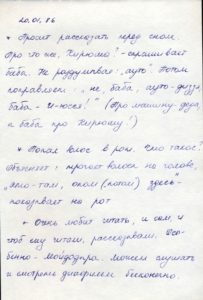 20.01.86
* Просит рассказать перед сном.
Про что же, Кирюша? - спрашивает
баба. Не раздумывая: „ауто". Потом
поправляется: „не, баба, ауто - дизя,
баба - и-юся!" (Про машину - деда,
а баба про Кирюшу!)
* Попал волос в рот. Что такое?
Объясняет: трогает волосы на голове
„это - там, окол (потом) здесь" -
показывает на рот
* Очень любит читать, и сам, и
чтоб ему читали, рассказывали. Осо-
бенно - Мойдодыра. Может слушать
и смотреть диафильм бесконечно.